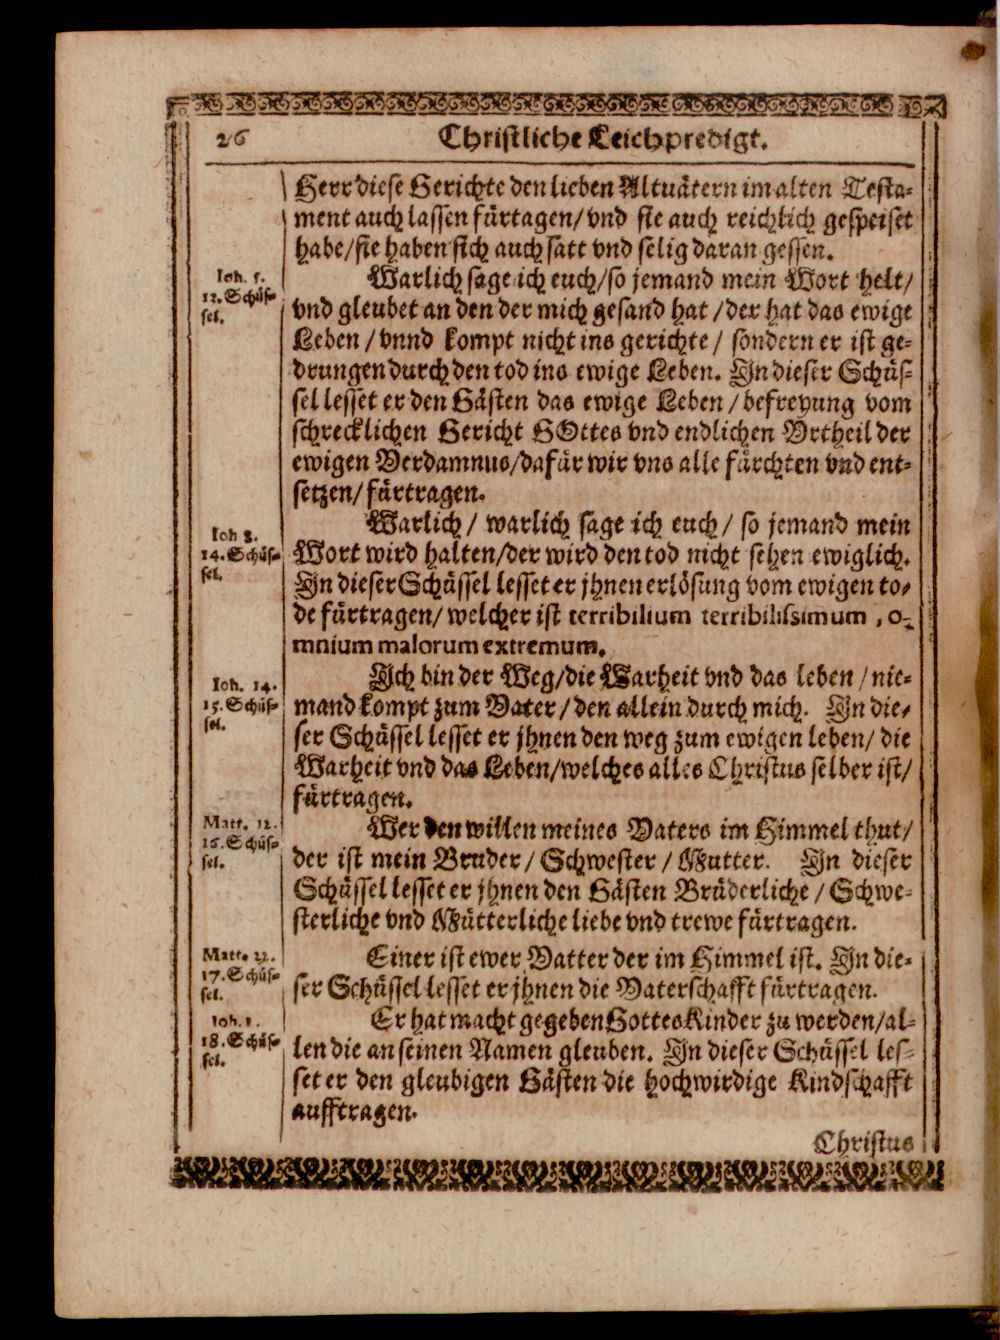 26
Christliche Leichpredigt.
Herr diese Gerichte den lieben Altvätern im alten Testa-
ment auch lassen fürtagen/ vnd sie auch reichlich gespeiset
habe/ sie haben sich auch satt vnd selig daran gessen.
Ioh. 5.
13. Schüs-
sel.
Warlich sage ich euch/ so jemand mein Wort helt/
vnd gleubet an den der mich gesand hat / der hat das ewige
Leben / vnnd kompt nicht ins gerichte / sondern er ist ge-
drungen durch den tod ins ewige Leben. In dieser Schüs-
sel lesset er den Gästen das ewige Leben / befreyung vom
schrecklichen Gericht GOttes vnd endlichen Vrtheil der
ewigen Verdamnus/ dafür wir vns alle fürchten vnd ent-
setzen/ fürtragen.
Ioh 8.
14. Schüs-
sel.
Warlich / warlich sage ich euch / so jemand mein
Wort wird halten/ der wird den tod nicht sehen ewiglich.
In dieser Schüssel lesset er jhnen erlösung vom ewigen to-
de fürtragen/ welcher ist terribilium terribilissimum , o-
mnium malorum extremum.
Ioh. 14.
15. Schüs-
sel.
Ich bin der Weg/ die Warheit vnd das leben / nie-
mand kompt zum Vater / den allein durch mich. In die-
ser Schüssel lesset er jhnen den weg zum ewigen leben/ die
Warheit vnd das Leben/ welches alles Christus selber ist/
fürtragen.
Matt. 12.
16. Schüs-
sel.
Wer den willen meines Vaters im Himmel thut/
der ist mein Bruder / Schwester / Mutter. In dieser
Schüssel lesset er jhnen den Gästen Brüderliche / Schwe-
sterliche vnd Mütterliche liebe vnd trewe fürtragen.
Matt. 23.
17. Schüs-
sel.
Einer ist ewer Vatter der im Himmel ist. In die-
ser Schüssel lesset er jhnen die Vaterschafft fürtragen.
Ioh. 1.
18. Schüs-
sel.
Er hat macht gegeben Gottes Kinder zu werden/ al-
len die an seinen Namen gleuben. In dieser Schüssel les-
set er den gleubigen Gästen die hochwirdige Kindschafft
aufftragen.
Christus